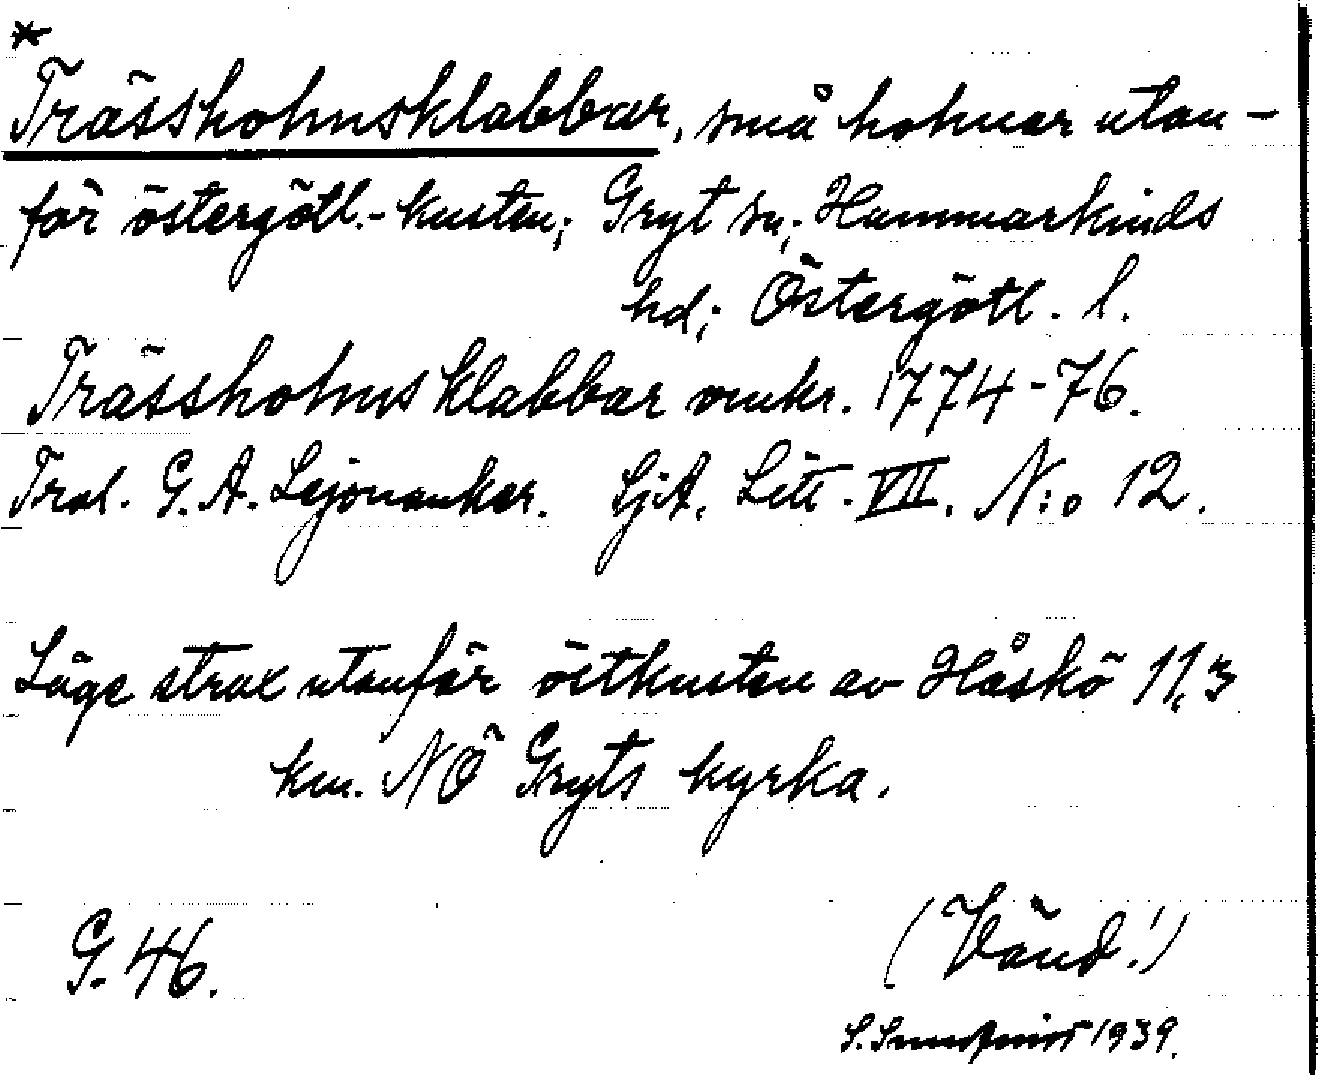 *
Trässholmsklabbar, små holmar utan-
för östergötl.-kusten; Gryt sn; Hammarkinds
hd; Östergötl. l.
Trässholms Klabbar omkr. 1774-76.
Tral. G. A. Lejonanker. SjA. Litt. VII. N:o 12.
Läge strax utanför östkusten av Håskö 11,3
km. NÖ Gryts kyrka.
G. 46.
(Vänd!)
S. 1939.